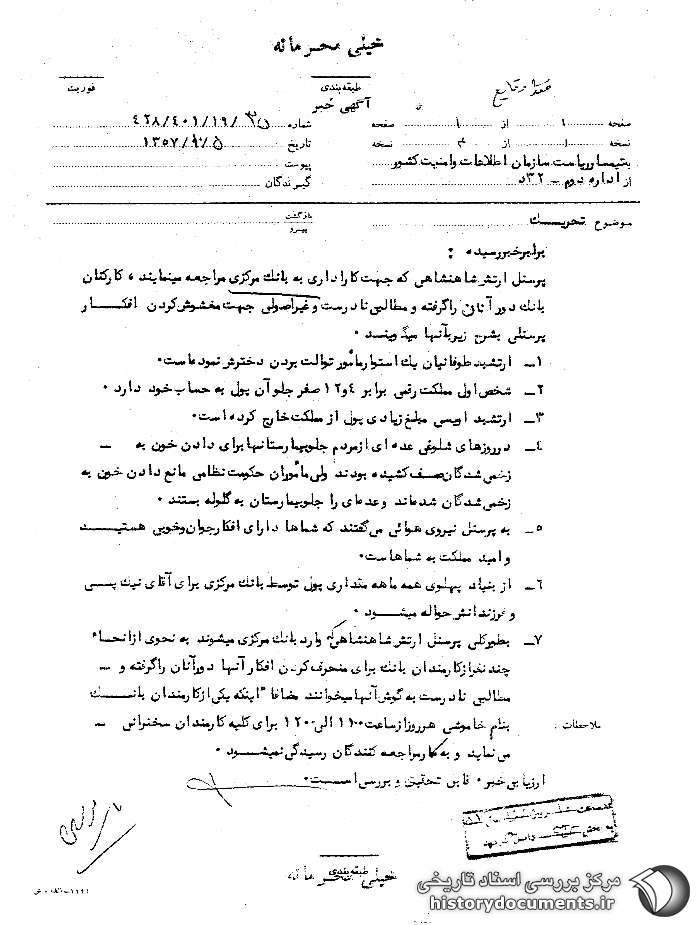 خیلی محرمانه
فوریت
طبقه‌بندی
آگهی خبر
حفظ وقایع
شماره ۴۲۸/۴۰۱/۱۹/۳۵
صفحه ۱ از ۱ صفحه
تاریخ ۱۳۵۷/۹/۵
نسخه ۱ از ۴ نسخه
پیوست
بتیمسار ریاست سازمان اطلاعات و امنیت کشور
گیرندگان
از اداره دوم – ۳۲د
موضوع تحریک
بازگشت
پیرو
برابر خبر رسیده :
پرسنل ارتش شاهنشاهی که جهت کار اداری به بانک مرکزی مراجعه مینمایند ، کارکنان
بانک دور آنان را گرفته و مطالبی نادرست و غیر اصولی جهت مغشوش کردن افکار
پرسنلی بشرح زیر بآنها میگویند .
۱– ارتشبد طوفانیان یک استوار مأمور توالت بردن دخترش نموده است.
۲– شخص اول مملکت رقمی برابر ۴ و ۱۲ صفر جلو آن پول به حساب خود دارد .
۳– ارتشبد اویسی مبلغ زیادی پول از مملکت خارج کرده است.
۴– در روزهای شلوغی عده ای از مردم جلو بیمارستانها برای دادن خون به –
زخمی شدگان صف کشیده بودند ولی مأموران حکومت نظامی مانع دادن خون به
زخمی شدگان شده‌اند و عده‌ای را جلو بیمارستان به گلوله بستند .
۵– به پرسنل نیروی هوائی می گفتند که شماها دارای افکار جوان و خوبی هستید
و امید مملکت به شماهاست.
۶– از بنیاد پهلوی همه ماهه مقداری پول توسط بانک مرکزی برای آقای نیک پی
و فرزندانش حواله میشود .
۷– بطور کلی پرسنل ارتش شاهنشاهی که وارد بانک مرکزی میشوند به نحوی از انحاء
چند نفر از کارمندان بانک برای منحرف کردن افکار آنها دور آنان را گرفته و –
مطالبی نادرست به گوش آنها میخوانند مضافا" اینکه یکی از کارمندان بانک
ملاحظات :
بنام خاموشی هر روز از ساعت ۱۱۰۰ الی ۱۲۰۰ برای کلیه کارمندان سخنرانی –
می نماید و به کار مراجعه کنندگان رسیدگی نمیشود .
ارزیابی خبر . قابل تحقیق و بررسی است.
طبقه‌بندی
خیلی محرمانه
مرکز بررسی اسناد تاریخی
historydocuments.ir